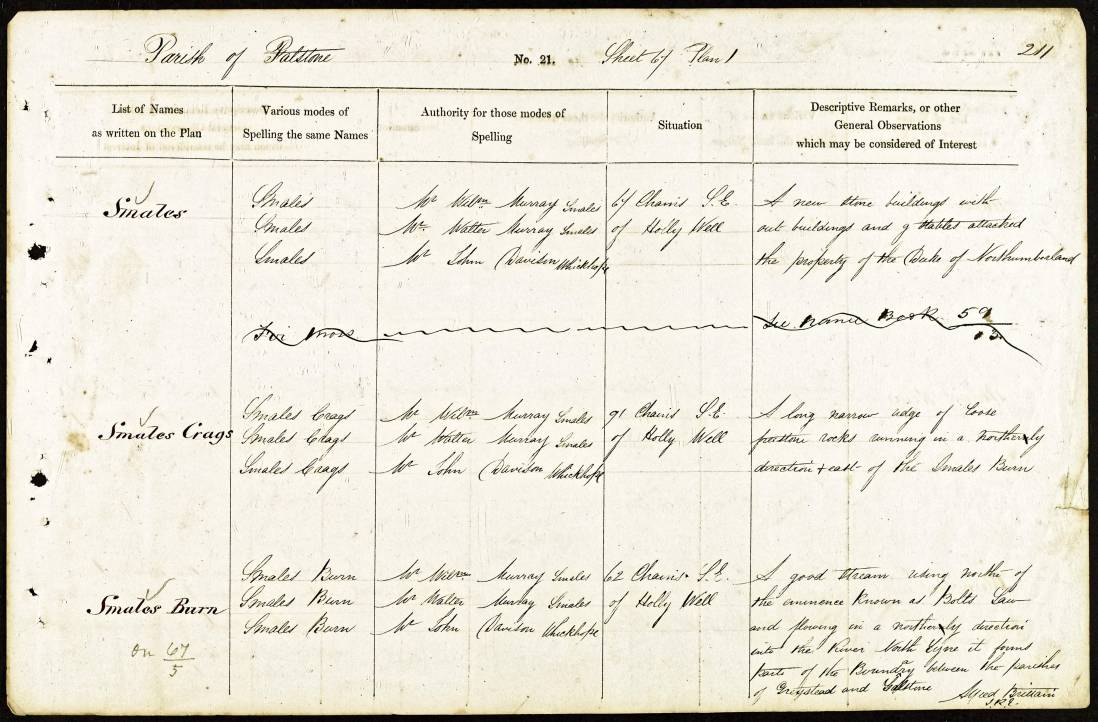 Parish of Falstone No. 21. Sheet 67 Plan 1 211
List of Names as written on the Plan
Various modes of Spelling the same Names
Authority for those modes of Spelling
Situation
Descriptive Remarks, or other General Observations which may be considered of Interest
Smales Smales Mr Willm Murray Smales 67 Chains S.E. A new stone buildings with
Smales Mr. Walter Murray Smales of Holly Well out buildings and g stables attached
Smales Mr John Davison Whickhope the property of the Duke of Northumberland
Moss See Name Book 59
13
Smales Crags Smales Crags Mr Willm Murray Smales 91 Chains S.E. A long narrow edge of loose
Smales Crags Mr Walter Murray Smales of Holly Well rocks running in a northerly
Smales Crags Mr John Davison Whickhope direction & east of the Smales Burn
Smales Burn Smales Burn Mr Willm Murray Smales 62 Chains S.E. A good stream rising north of
Smales Burn Mr Walter Murray Smales of Holly Well the eminence known as Bolts Law
Smales Burn Mr John Davison Whickhope and flowing in a northerly direction
on 67
5
into the River North Tyne it forms
parts of the Boundry between the parishes
of Greystead and Falstone Alfred Brittain